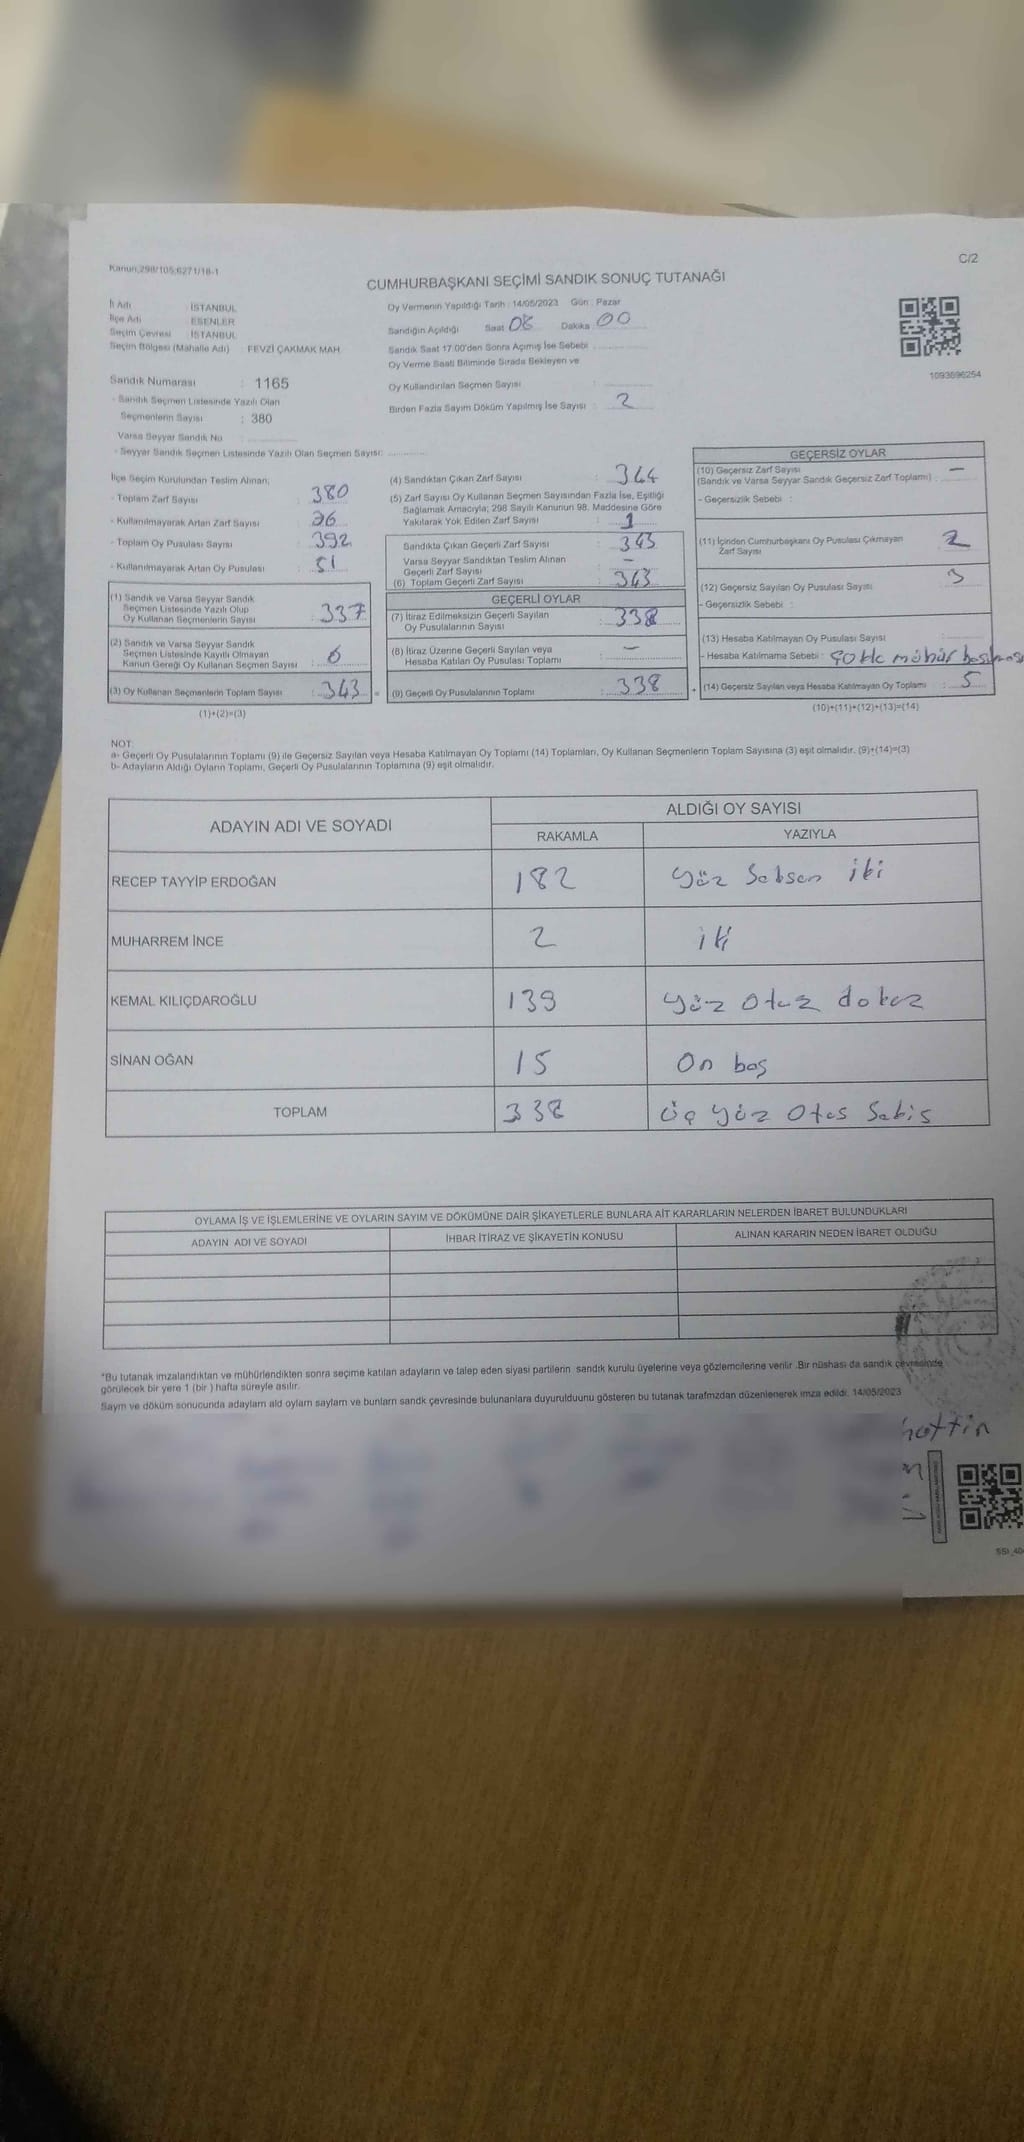 Kanun;298/105;6271/18-1
C/2
CUMHURBAŞKANI SEÇİMİ SANDIK SONUÇ TUTANAĞI
İl Adı : İSTANBUL
İlçe Adı : ESENLER
Seçim Çevresi : İSTANBUL
Seçim Bölgesi (Mahalle Adı) FEVZİ ÇAKMAK MAH.
Sandık Numarası : 1165
- Sandık Seçmen Listesinde Yazılı Olan
Seçmenlerin Sayısı : 380
Varsa Seyyar Sandık No
- Seyyar Sandık Seçmen Listesinde Yazılı Olan Seçmen Sayısı:
Oy Vermenin Yapıldığı Tarih : 14/05/2023 Gün : Pazar
Sandığın Açıldığı Saat 08 Dakika 00
Sandık Saat 17:00'den Sonra Açımış İse Sebebi
Oy Verme Saati Bitiminde Sırada Bekleyen ve
Oy Kullandırılan Seçmen Sayısı :
Birden Fazla Sayım Döküm Yapılmış İse Sayısı : 2
1093696254
İlçe Seçim Kurulundan Teslim Alınan;
- Toplam Zarf Sayısı : 380
- Kullanılmayarak Artan Zarf Sayısı : 36
- Toplam Oy Pusulası Sayısı : 392
- Kullanılmayarak Artan Oy Pusulası : 51
(1) Sandık ve Varsa Seyyar Sandık
Seçmen Listesinde Yazılı Olup
Oy Kullanan Seçmenlerin Sayısı : 337
(2) Sandık ve Varsa Seyyar Sandık
Seçmen Listesinde Kayıtlı Olmayan
Kanun Gereği Oy Kullanan Seçmen Sayısı : 6
(3) Oy Kullanan Seçmenlerin Toplam Sayısı : 343 =
(1)+(2)=(3)
(4) Sandıktan Çıkan Zarf Sayısı : 344
(5) Zarf Sayısı Oy Kullanan Seçmen Sayısından Fazla İse, Eşitliği
Sağlamak Amacıyla; 298 Sayılı Kanunun 98. Maddesine Göre
Yakılarak Yok Edilen Zarf Sayısı : 1
Sandıkta Çıkan Geçerli Zarf Sayısı : 343
Varsa Seyyar Sandıktan Teslim Alınan
Geçerli Zarf Sayısı : -
(6) Toplam Geçerli Zarf Sayısı : 343
GEÇERLİ OYLAR
(7) İtiraz Edilmeksizin Geçerli Sayılan
Oy Pusulalarının Sayısı : 338
(8) İtiraz Üzerine Geçerli Sayılan veya
Hesaba Katılan Oy Pusulası Toplamı : -
(9) Geçerli Oy Pusulalarının Toplamı : 338 +
GEÇERSİZ OYLAR
(10) Geçersiz Zarf Sayısı
(Sandık ve Varsa Seyyar Sandık Geçersiz Zarf Toplamı) : -
- Geçersizlik Sebebi :
(11) İçinden Cumhurbaşkanı Oy Pusulası Çıkmayan
Zarf Sayısı 2
(12) Geçersiz Sayılan Oy Pusulası Sayısı 3
- Geçersizlik Sebebi :
(13) Hesaba Katılmayan Oy Pusulası Sayısı :
- Hesaba Katılmama Sebebi : mühür
(14) Geçersiz Sayılan veya Hesaba Katılmayan Oy Toplamı : 5
(10)+(11)+(12)+(13)=(14)
NOT:
a- Geçerli Oy Pusulalarının Toplamı (9) ile Geçersiz Sayılan veya Hesaba Katılmayan Oy Toplamı (14) Toplamları, Oy Kullanan Seçmenlerin Toplam Sayısına (3) eşit olmalıdır. (9)+(14)=(3)
b- Adayların Aldığı Oyların Toplamı, Geçerli Oy Pusulalarının Toplamına (9) eşit olmalıdır.
ADAYIN ADI VE SOYADI
ALDIĞI OY SAYISI
RAKAMLA YAZIYLA
RECEP TAYYİP ERDOĞAN 182 yüz seksen iki
MUHARREM İNCE 2 iki
KEMAL KILIÇDAROĞLU 139 yüz otuz dokuz
SİNAN OĞAN 15 On beş
TOPLAM 338 üç yüz Otuz Sekiz
OYLAMA İŞ VE İŞLEMLERİNE VE OYLARIN SAYIM VE DÖKÜMÜNE DAİR ŞİKAYETLERLE BUNLARA AİT KARARLARIN NELERDEN İBARET BULUNDUKLARI
ADAYIN ADI VE SOYADI İHBAR İTİRAZ VE ŞİKAYETİN KONUSU ALINAN KARARIN NEDEN İBARET OLDUĞU
*Bu tutanak imzalandıktan ve mühürlendikten sonra seçime katılan adayların ve talep eden siyasi partilerin sandık kurulu üyelerine veya gözlemcilerine verilir .Bir nüshası da sandık çevresinde
görülecek bir yere 1 (bir ) hafta süreyle asılır.
Sayım ve döküm sonucunda adayların ald oyların sayları ve bunların sandk çevresinde bulunanlara duyurulduunu gösteren bu tutanak tarafmzdan düzenlenerek imza edildi. 14/05/2023
hattin